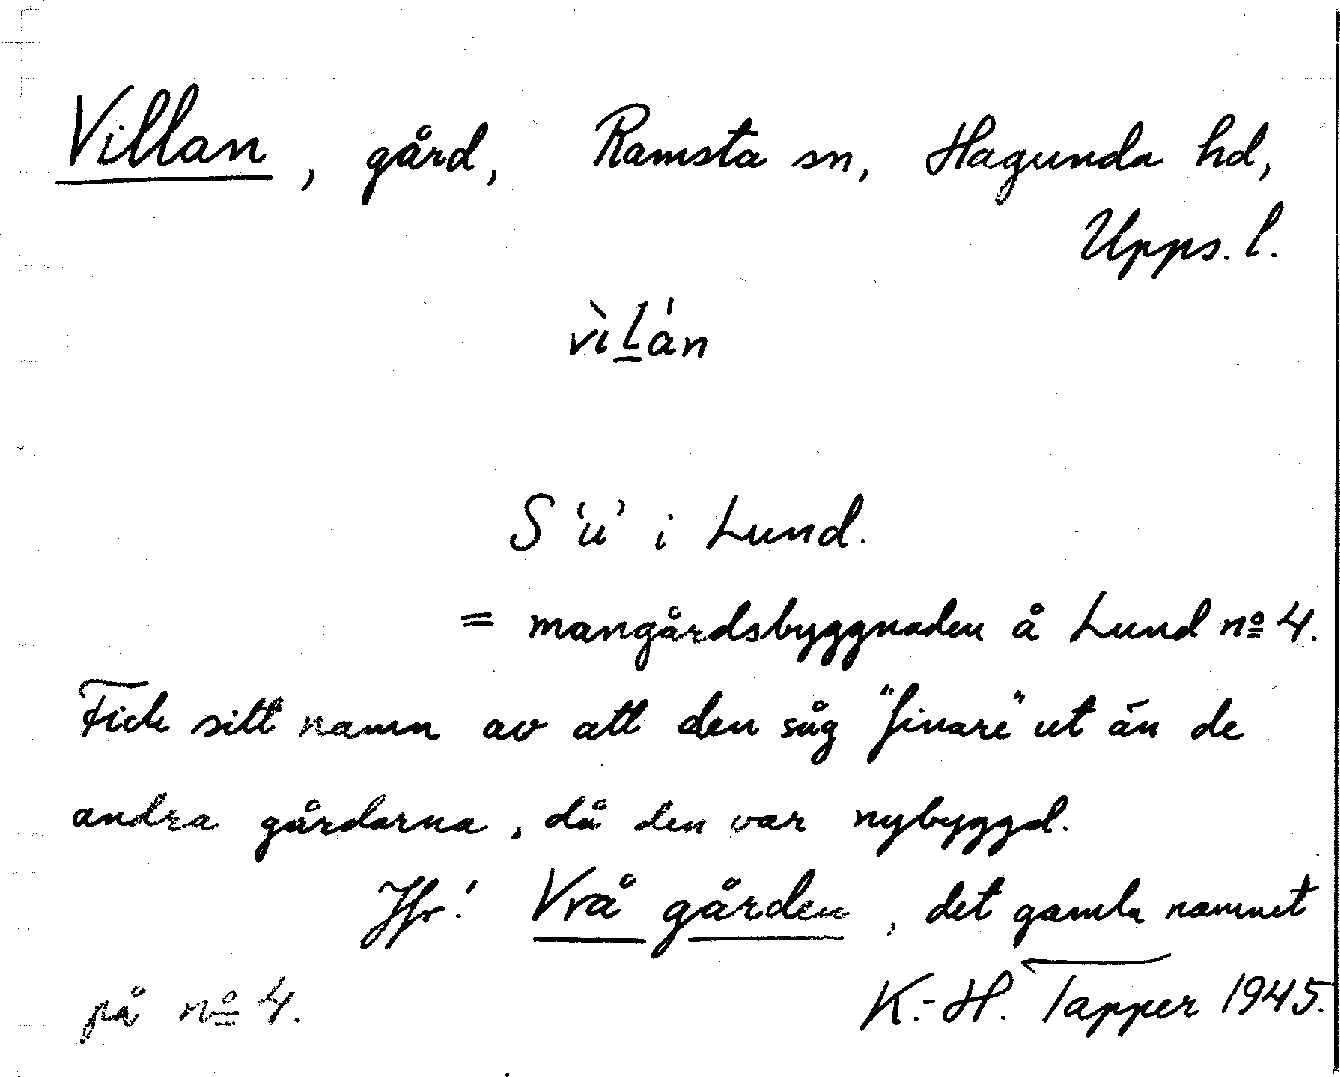 Villan, gård, Ramsta sn, Hagunda hd,
Upps. l.
vìĻán
S 'u' i Lund.
= mangårdsbyggnaden å Lund nº 4.
Fick sitt namn av att den såg "finare" ut än de
andra gårdarna, då den var nybyggd.
Jfr! Vrå gården, det gamla namnet
på nº 4.
K.-H. Tapper 1945.